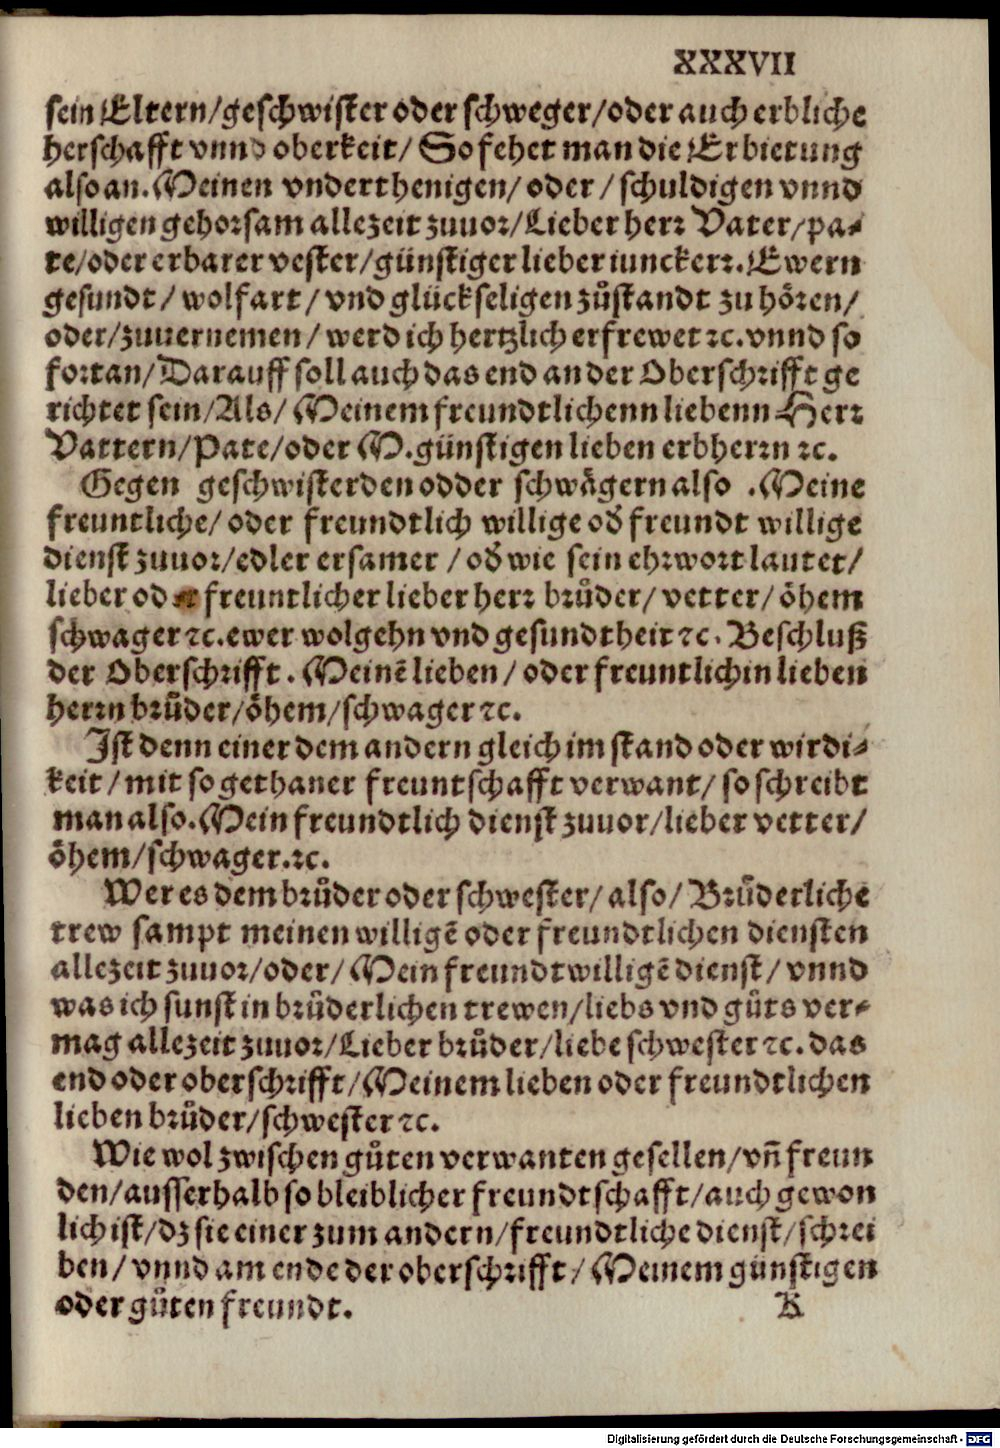 XXXVII
sein Eltern/geschwister oder schweger/oder auch erbliche
herschafft vnnd oberkeit/ So fehet man die Erbietung
also an. Meinen vnderthenigen/ oder / schuldigen vnnd
willigen gehorsam allezeit zuuor/Lieber herr Vater/pa-
te/oder erbarer vester/günstiger lieber iunckerr. Ewern
gesundt/ wolfart/ vnd glückseligen zůstandt zu hören/
oder/zuuernemen/ werd ich hertzlich erfrewet ꝛc. vnnd so
fortan/Darauff soll auch das end an der Oberschrifft ge
richtet sein/Als/ Meinem freundtlichenn liebenn Herr
Vattern/Pate/oder M. günstigen lieben erbherrn ꝛc.
Gegen geschwisterden odder schwägern also . Meine
freuntliche/ oder freundtlich willige oď freundt willige
dienst zuuor/edler ersamer /oď wie sein ehrwort lautet/
lieber oder freuntlicher lieber herr brůder/ vetter/ öhem
schwager ꝛc. ewer wolgehn vnd gesundtheit ꝛc. Beschluß
der Oberschrifft. Meinē lieben/ oder freuntlichin lieben
herrn brůder/öhem/schwager ꝛc.
Ist denn einer dem andern gleich im stand oder wirdi-
keit/ mit so gethaner freuntschafft verwant/ so schreibt
man also. Mein freundtlich dienst zuuor/lieber vetter/
öhem/schwager.ꝛc.
Wer es dem brůder oder schwester/ also/ Brůderliche
trew sampt meinen willigē oder freundtlichen diensten
allezeit zuuor/oder/ Mein freundtwilligē dienst/ vnnd
was ich sunst in brůderlichen trewen/liebs vnd gůts ver-
mag allezeit zuuor/Lieber brůder/liebe schwester ꝛc. das
end oder oberschrifft/Meinem lieben oder freundtlichen
lieben brůder/schwester ꝛc.
Wie wol zwischen gůten verwanten gesellen/vñ freun
den/ausserhalb so bleiblicher freundtschafft/auch gewon
lich ist/dz sie einer zum andern/freundtliche dienst/schrei
ben/ vnnd am ende der oberschrifft/ Meinem günstigen
oder gůten freundt. K
Digitalisierung gefördert durch die Deutsche Forschungsgemeinschaft - DFG